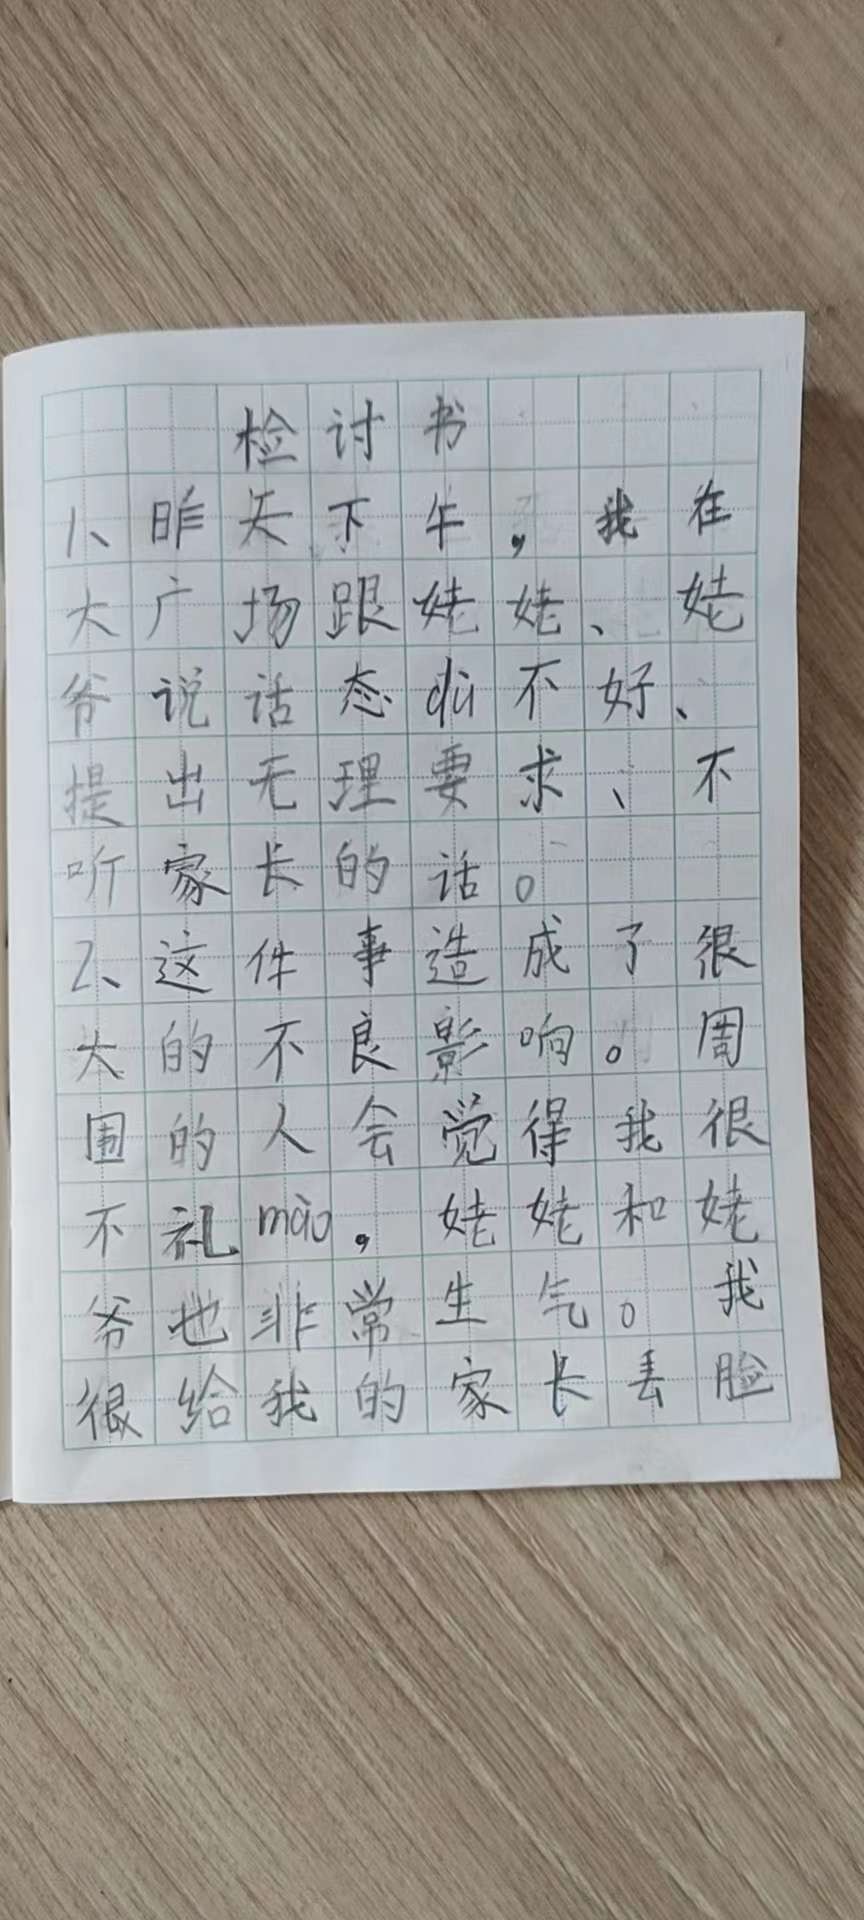 检讨书
1、昨天下午，我在
大广场跟姥姥、姥
爷说话态dù不好、
提出无理要求、不
听家长的话。
2、这件事造成了很
大的不良影响。周
围的人会觉得我很
不礼mào，姥姥和姥
爷也非常生气。我
很给我的家长丢脸